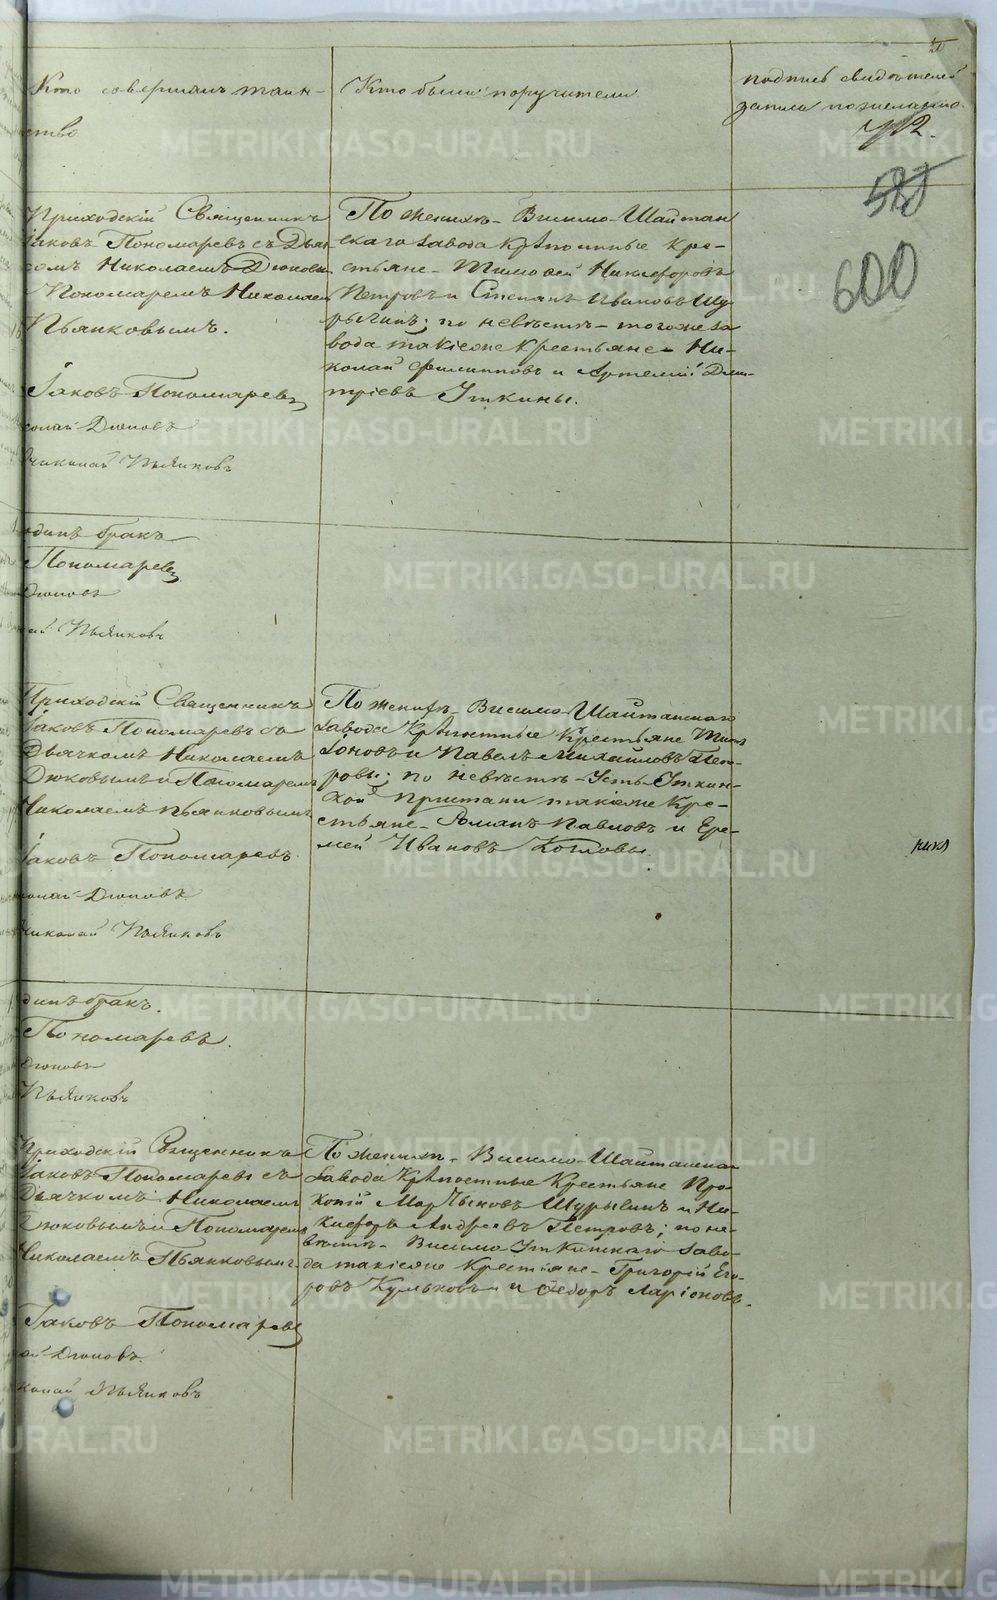 Кто совершалъ таин-
ство
Кто были поручители
подпись свидѣтелей
записи по желанію.
712.
600
Приходскій Священникъ
Іаковъ Пономаревъ съ Дьяч-
комъ Николаемъ Дюковы
Пономаремъ Николаем
Пьянковымъ.
Іаковъ Пономаревъ
колай Дюковъ
Николай Пьянковъ
По женихѣ - Висимо-Шайтан
скаго завода Крѣпостные Кре-
стьяне - Тимоѳей Никифоровъ
Петровъ и Степанъ Ивановъ Щу
рыгинъ; по невѣстѣ - тогоже за
вода такіеже Крестьяне - Ни-
колай Филипповъ и Артемій Дми-
тріевъ Уткины.
одинъ бракъ
Пономаревъ
Дюковъ
лай Пьянковъ
Приходскій Священникъ
Іаковъ Пономаревъ съ
Дьячкомъ Николаемъ
Дюковымъ и Пономарем
Николаемъ Пьянковымъ
Іаковъ Пономаревъ.
колай Дюковъ
Николай Пьянковъ
По женихѣ - Висимо-Шайтанскаго
завода Крѣпостные Крестьяне
и Павелъ Михайловъ Пет-
ровы; по невѣстѣ - Усть-Уткин-
ской Пристани такіеже Кре-
стьяне - Романъ Павловъ и Ере-
мей Ивановъ Козловы.
динъ бракъ.
Пономаревъ.
Дюковъ
Пьянковъ
Приходскій Священникъ
Іаковъ Пономаревъ съ
Дьячкомъ Николаемъ
Дюковымъ и Пономаремъ
Николаемъ Пьянковымъ.
Іаковъ Пономаревъ
лай Дюковъ.
колай Пьянковъ
По женихѣ - Висимо-Шайтанскаго
завода Крѣпостные Крестьяне Про-
копій Щурыгинъ и Ни-
кифоръ Андреевъ Петровъ; по не-
вѣстѣ - Висимо-Уткинскаго заво-
да такіеже Крестьяне - Григорій Его-
ровъ Кульковъ и Ѳедоръ Ларіоновъ.
METRIKI.GASO-URAL.RU